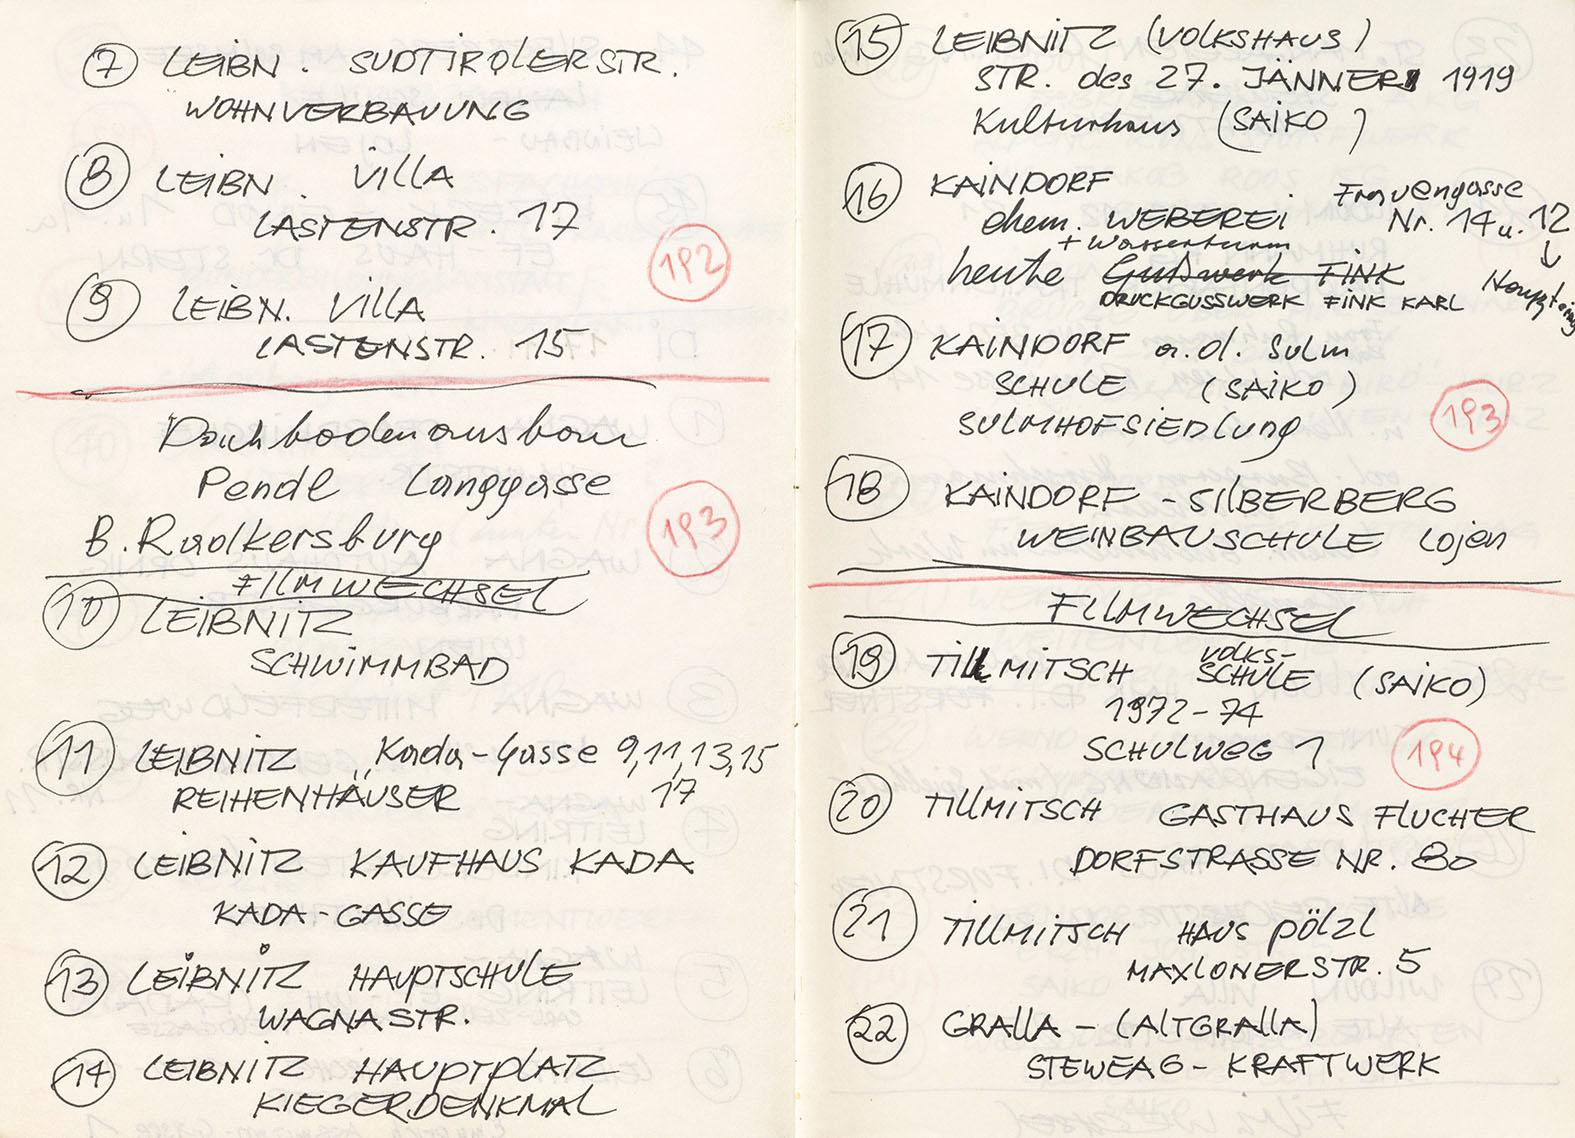 7 LEIBN. SÜDTIROLERSTR.
WOHNVERBAUUNG
8 LEIBN. VILLA
LASTENSTR. 17
192
9 LEIBN. VILLA
LASTENSTR. 15
Dachbodenausbau
Pendl Langgasse
B. Radkersburg
193
FILMWECHSEL
10 LEIBNITZ
SCHWIMMBAD
11 LEIBNITZ Kada-Gasse 9,11,13,15
REIHENHÄUSER 17
12 LEIBNITZ KAUFHAUS KADA
KADA-GASSE
13 LEIBNITZ HAUPTSCHULE
WAGNASTR.
14 LEIBNITZ HAUPTPLATZ
KIEGERDENKMAL
15 LEIBNITZ (VOLKSHAUS)
STR. des 27. JÄNNER 1919
Kulturhaus (SAIKO)
16 KAINDORF Frauengasse
ehem. WEBEREI Nr. 14 u. 12
+ Wasserturm
heute Gußwerk FINK Haupteing
DRUCKGUSSWERK FINK KARL
17 KAINDORF a.d. Sulm
SCHULE (SAIKO)
SULMHOFSIEDLUNG
193
18 KAINDORF - SILBERBERG
WEINBAUSCHULE Lojen
FILMWECHSEL
19 TILLMITSCH VOLKS-
SCHULE (SAIKO)
1972-74
SCHULWEG 1
194
20 TILLMITSCH GASTHAUS FLUCHER
DORFSTRASSE NR. 80
21 TILLMITSCH HAUS PÖLZL
MAXLONERSTR. 5
22 GRALLA - (ALTGRALLA)
STEWEAG - KRAFTWERK